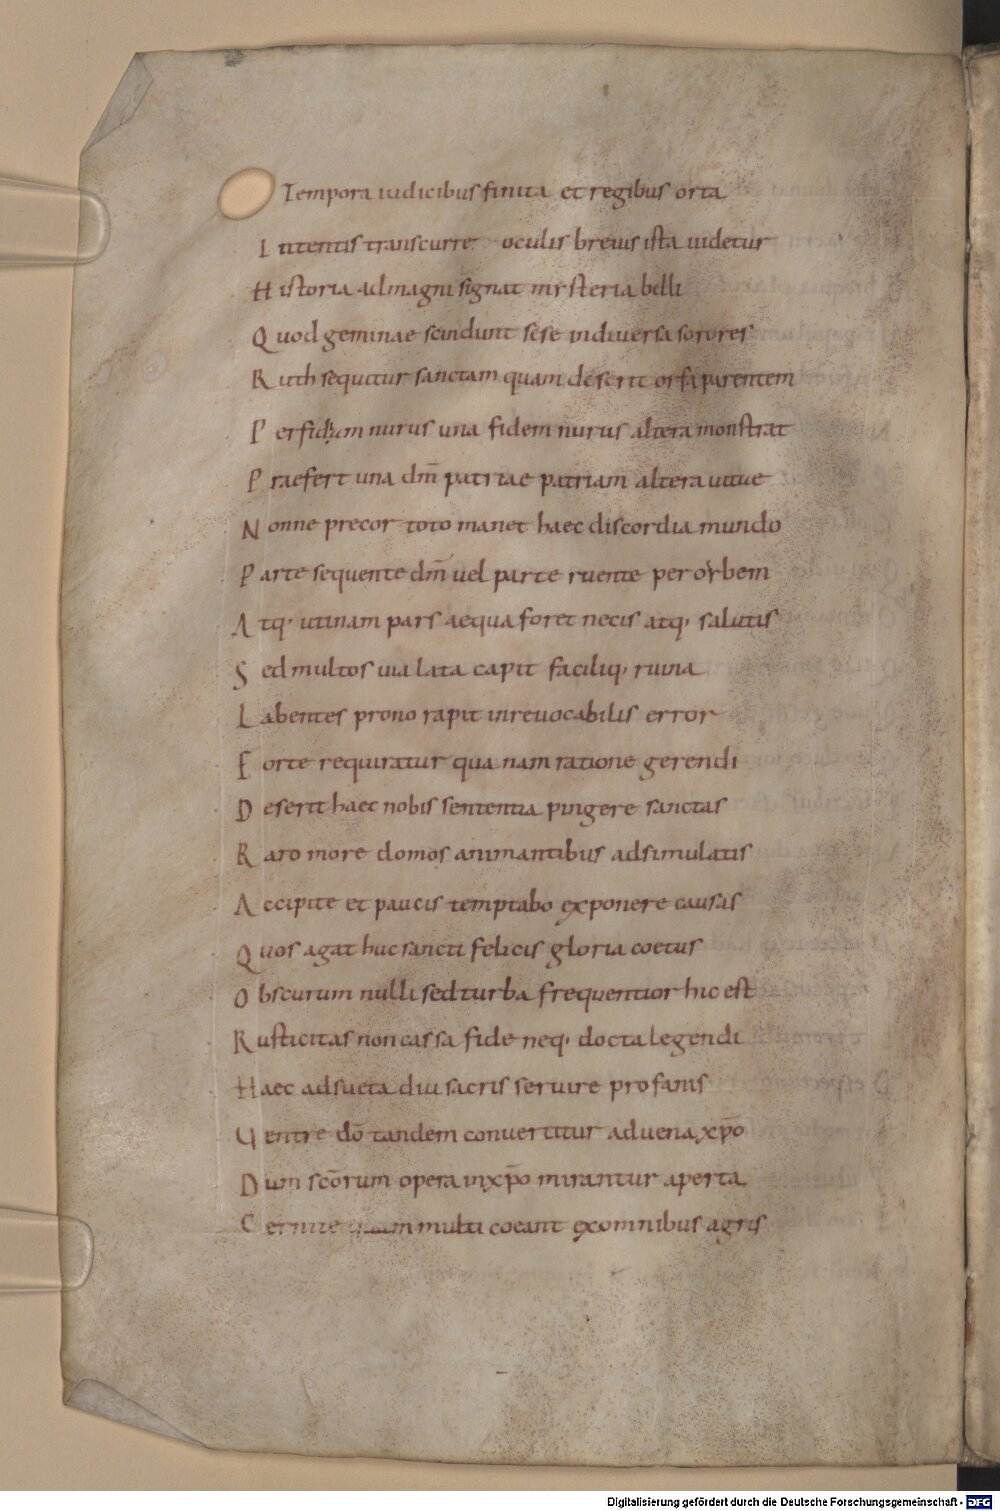 Tempora iudicibus finita et regibus orta
Intentis transcurre oculis breuis ista uidetur
Historia ad magni signat mysteria belli
Quod geminae scindunt sese in diuersa sorores
Ruth sequitur sanctam quam deserit orfa parentem
Perfidiam nurus una fidem nurus altera monstrat
Praefert una dm̄ patriae patriam altera uitae
Nonne precor toto manet haec discordia mundo
Parte sequente dm̄ uel parte ruente per orbem
Atq; utinam pars aequa foret necis atq; salutis
Sed multos uia lata capit faciliq; ruina
Labentes prono rapit inreuocabilis error
Forte requiratur qua nam ratione gerendi
Deserit haec nobis sententia pingere sanctas
Raro more domos animantibus adsimulatis
Accipite et paucis temptabo exponere causas
Quos agat huc sancti felicis gloria coetus
Obscurum nulli sed turba frequentior hic est
Rusticitas non cassa fide neq; docta legendi
Haec adsueta diu sacris seruire profanis
Ventre dō tandem conuertitur aduena xp̄o
Dum scōrum opera in xp̄o mirantur aperta
Cernite quam multi coeant ex omnibus agris
Digitalisierung gefördert durch die Deutsche Forschungsgemeinschaft - DFG